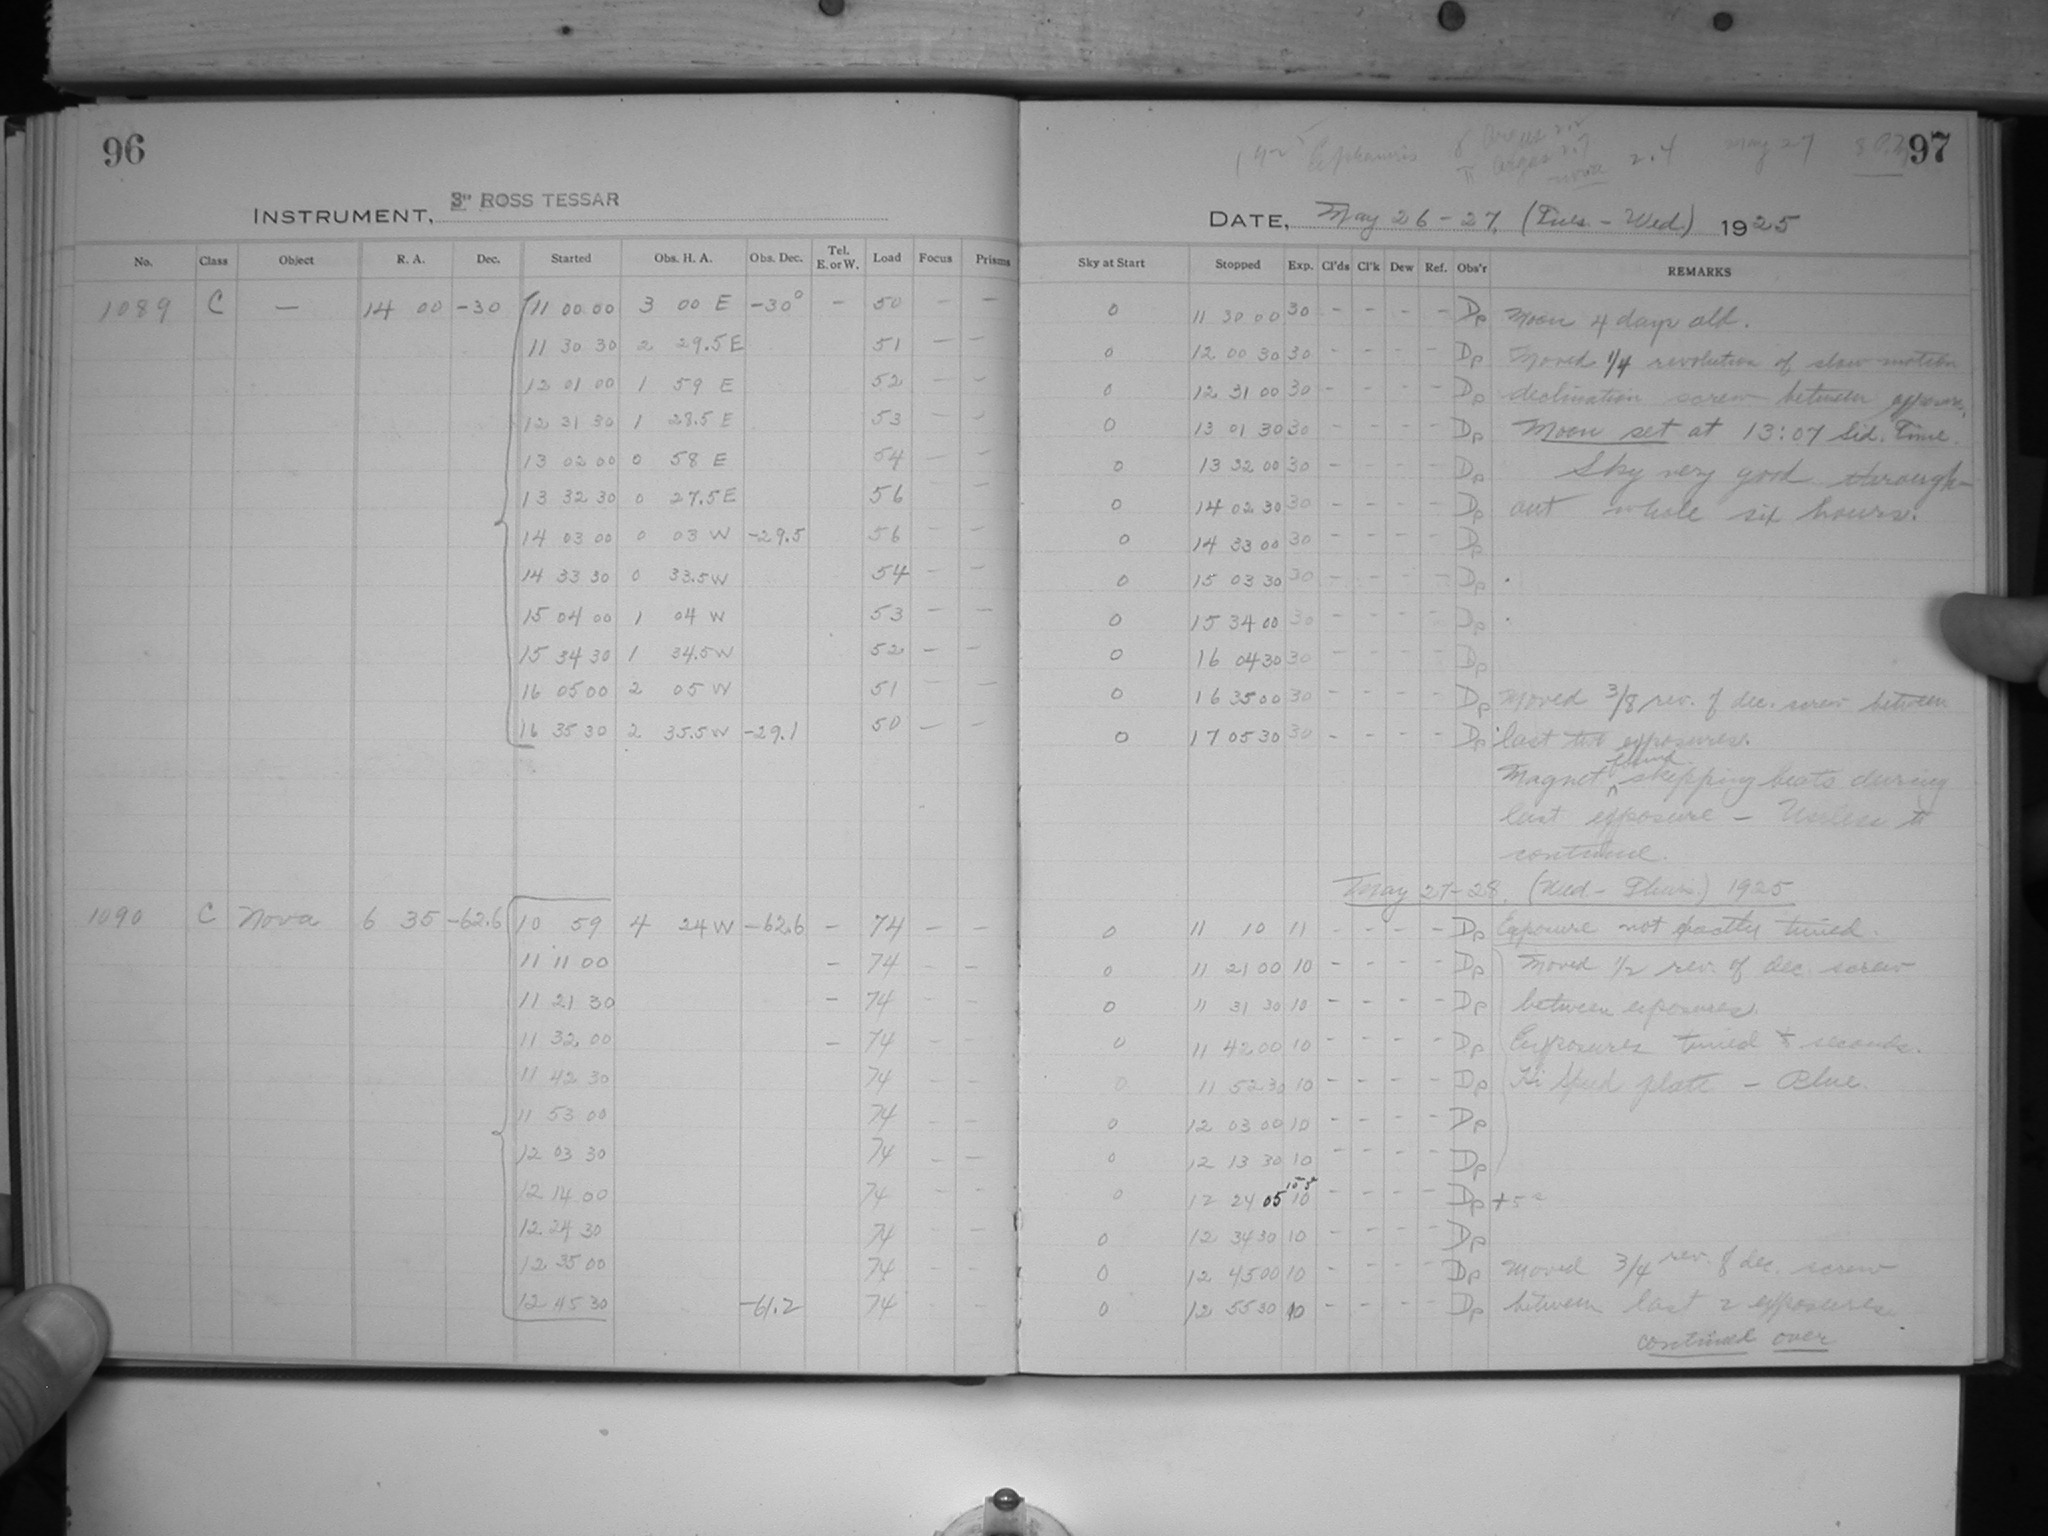 96
INSTRUMENT, 3" ROSS TESSAR
No. Class Object R. A. Dec. Started Obs. H. A. Obs. Dec. Tel. E. or W. Load Focus Prisms
1089 C — 14 00 -30 11 00 00 3 00 E -30° - 50 - -
11 30 30 2 29.5 E 51 - -
12 01 00 1 59 E 52 - -
12 31 30 1 28.5 E 53 - -
13 02 00 0 58 E 54 - -
13 32 30 0 27.5 E 56 -
14 03 00 0 03 W -29.5 56 - -
14 33 30 0 33.5 W 54 - -
15 04 00 1 04 W 53 - -
15 34 30 1 34.5 W 52 - -
16 05 00 2 05 W 51 - -
16 35 30 2 35.5 W -29.1 50 - -
1090 C Nova 6 35 -62.6 10 59 4 24 W -62.6 - 74 - -
11 11 00 - 74 - -
11 21 30 - 74 - -
11 32 00 - 74 - -
11 42 30 74 - -
11 53 00 74 - -
12 03 30 74 - -
12 14 00 74 - -
12 24 30 74 - -
12 35 00 74 - -
12 45 30 -61.2 74 - -
1925 Ephemeris 2.4 May 27 97
γ Argus 2.2
π Argus 2.7
nova
DATE, May 26-27, (Tues. - Wed.) 1925
Sky at Start Stopped Exp. Cl'ds Cl'k Dew Ref. Obs'r REMARKS
0 11 30 00 30 - - - - Dp Moon 4 days old.
0 12 00 30 30 - - - - Dp Moved 1/4 revolution of slow motion
0 12 31 00 30 - - - - Dp declination screw between exposures.
0 13 01 30 30 - - - - Dp Moon set at 13:07 Sid. Time.
0 13 32 00 30 - - - - Dp Sky very good through-
0 14 02 30 30 - - - - Dp out whole six hours.
0 14 33 00 30 - - - - Dp
0 15 03 30 30 - - - - Dp
0 15 34 00 30 - - - - Dp
0 16 04 30 30 - - - - Dp
0 16 35 00 30 - - - - Dp Moved 3/8 rev. of dec. screw between
0 17 05 30 30 - - - - Dp last two exposures.
Magnet found skipping beats during
last exposure - Useless to
continue.
May 27-28, (Wed - Thurs.) 1925
0 11 10 11 - - - - Dp Exposure not exactly timed.
0 11 21 00 10 - - - - Dp Moved 1/2 rev. of dec. screw
0 11 31 30 10 - - - - Dp between exposures.
0 11 42 00 10 - - - - Dp Exposures timed to seconds.
0 11 52 30 10 - - - - Dp Hi Speed plate - Blue.
0 12 03 00 10 - - - - Dp
0 12 13 30 10 - - - - Dp
0 12 24 05 10 - - - - Dp +5s
0 12 34 30 10 - - - - Dp
0 12 45 00 10 - - - - Dp Moved 3/4 rev. of dec. screw
0 12 55 30 10 - - - - Dp between last 2 exposures.
continued over